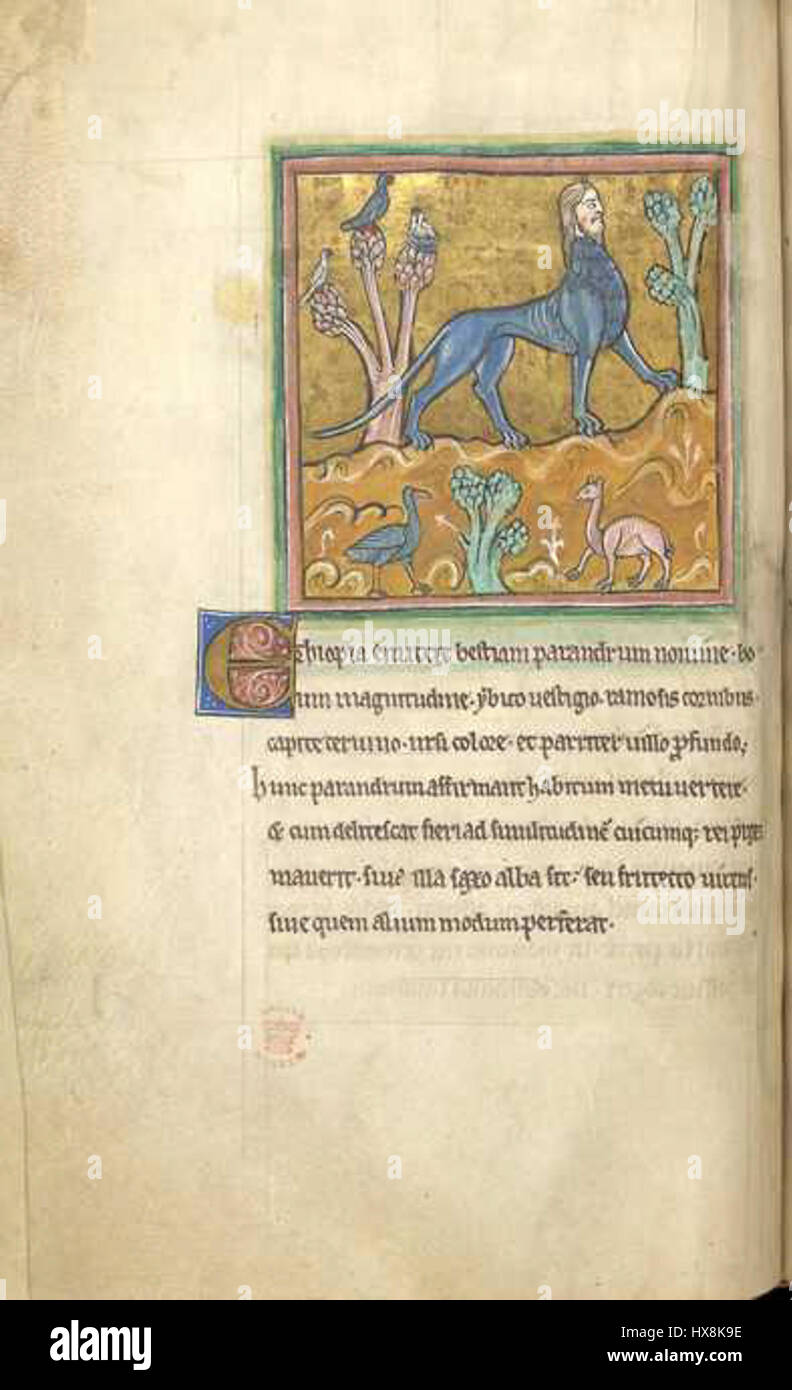 Ethiopia bestiam parandrum nomine· bo
um magnitudine· ybico uestigio· ramosis cornibus·
capite ceruino· ursi colore· et pariter uillo ꝓfundo;
hunc parandrum affirmant habitum metu uertere·
& cum delitescat fieri ad similitudinē cuicumq; rei
mauerit· siue illa saxo alba sit· seu frutecto uirens·
siue quem alium modum perferat·
alamy
alamy
alamy
HX8K9E
www.alamy.com